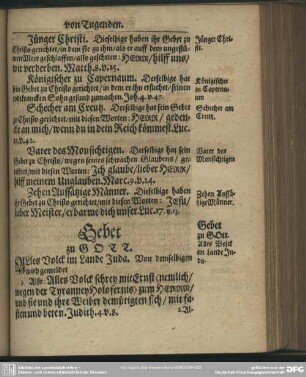 von Tugenden.
Jünger Christi. Dieselbige haben ihr Gebet zu
Christo gerichtet/ in dem sie zu ihm/ als er auff dem ungestü-
Meer geschlaffen/ also geschrien: HERR/ hilff uns/
wir verderben. Matth. 8. v. 25.
Jünger Chri-
sti.
Königischer zu Capernaum. Derselbige hat
sein Gebet zu Christo gerichtet/ in dem er ihn ersuchet/ seinen
Sohn gesund zumachen. Joh. 4. v. 47.
Königischer
zu Caperna-
um
Schecher am Creutz. Derselbige hat sein Gebet
zu Christo gerichtet/ mit diesen Worten: HERR/ geden-
cke an mich/ wenn du in dein Reich kömmest. Luc.
v. 42.
Schecher am
Creutz.
Vater des Monsichtigen. Derselbige hat sein
Gebet zu Christo/ wegen seines schwachen Glaubens/ ge-
richtet/ mit diesen Worten: Ich glaube/ lieber HERR/
hilff meinem Unglauben. Marc. 9. v. 24.
Vater des
Monsichtigen
Zehen Aussätzige Männer. Dieselbige haben
ihr Gebet zu Christo gerichtet/ mit diesen Worten: JESU/
lieber Meister/ erbarme dich unser. Luc. 17. v. 13.
Zehen Auss-
ätzige Männer
Gebet
zu GOTT.
Gebet
zu Gott.
Alles Volck im Lande Juda. Von demselbigen
wird gemeldet
Alles Volck
im Lande Ju-
da.
Also: Alles Volck schrey mit Ernst (nemlich/
wegen der Tyranney Holofernis) zum HERRN/
und sie und ihre Weiber demütigten sich/ mit fa-
sten und beten. Judith. 4. v. 8.